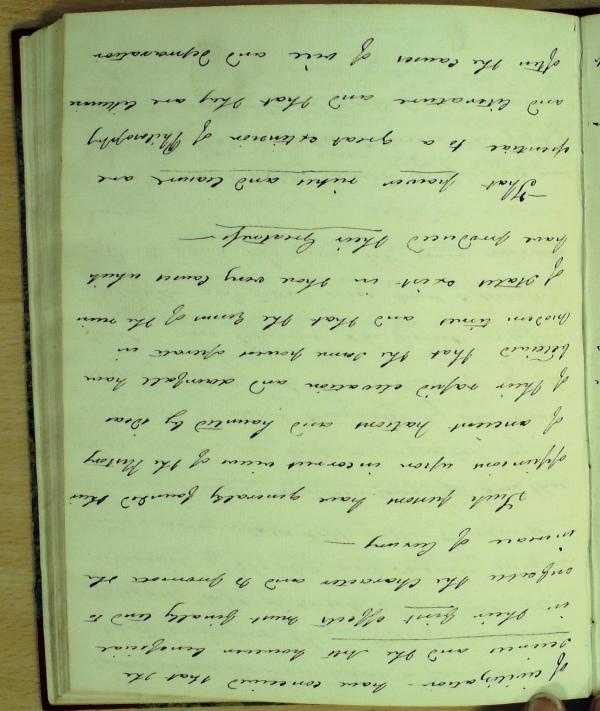 of civilization - have conceived that the
sciences and the Arts however beneficial
in their first effects must finally tend to
enfeeble the Character and to promote the
increase of luxury —
Such persons have generally founded their
oppinions upon incorrect views of the History
of ancient Nations and haunted by ideas
of their rapid elevation and downfall have
believed that the same powers operate in
modern times and that the Germs of the ruin
of States exist in those very causes which
have produced their Greatness —
- That power riches and leisure are
essential to a great extension of Philosophy
and literature and that they are likewise
often the causes of vice and depravation